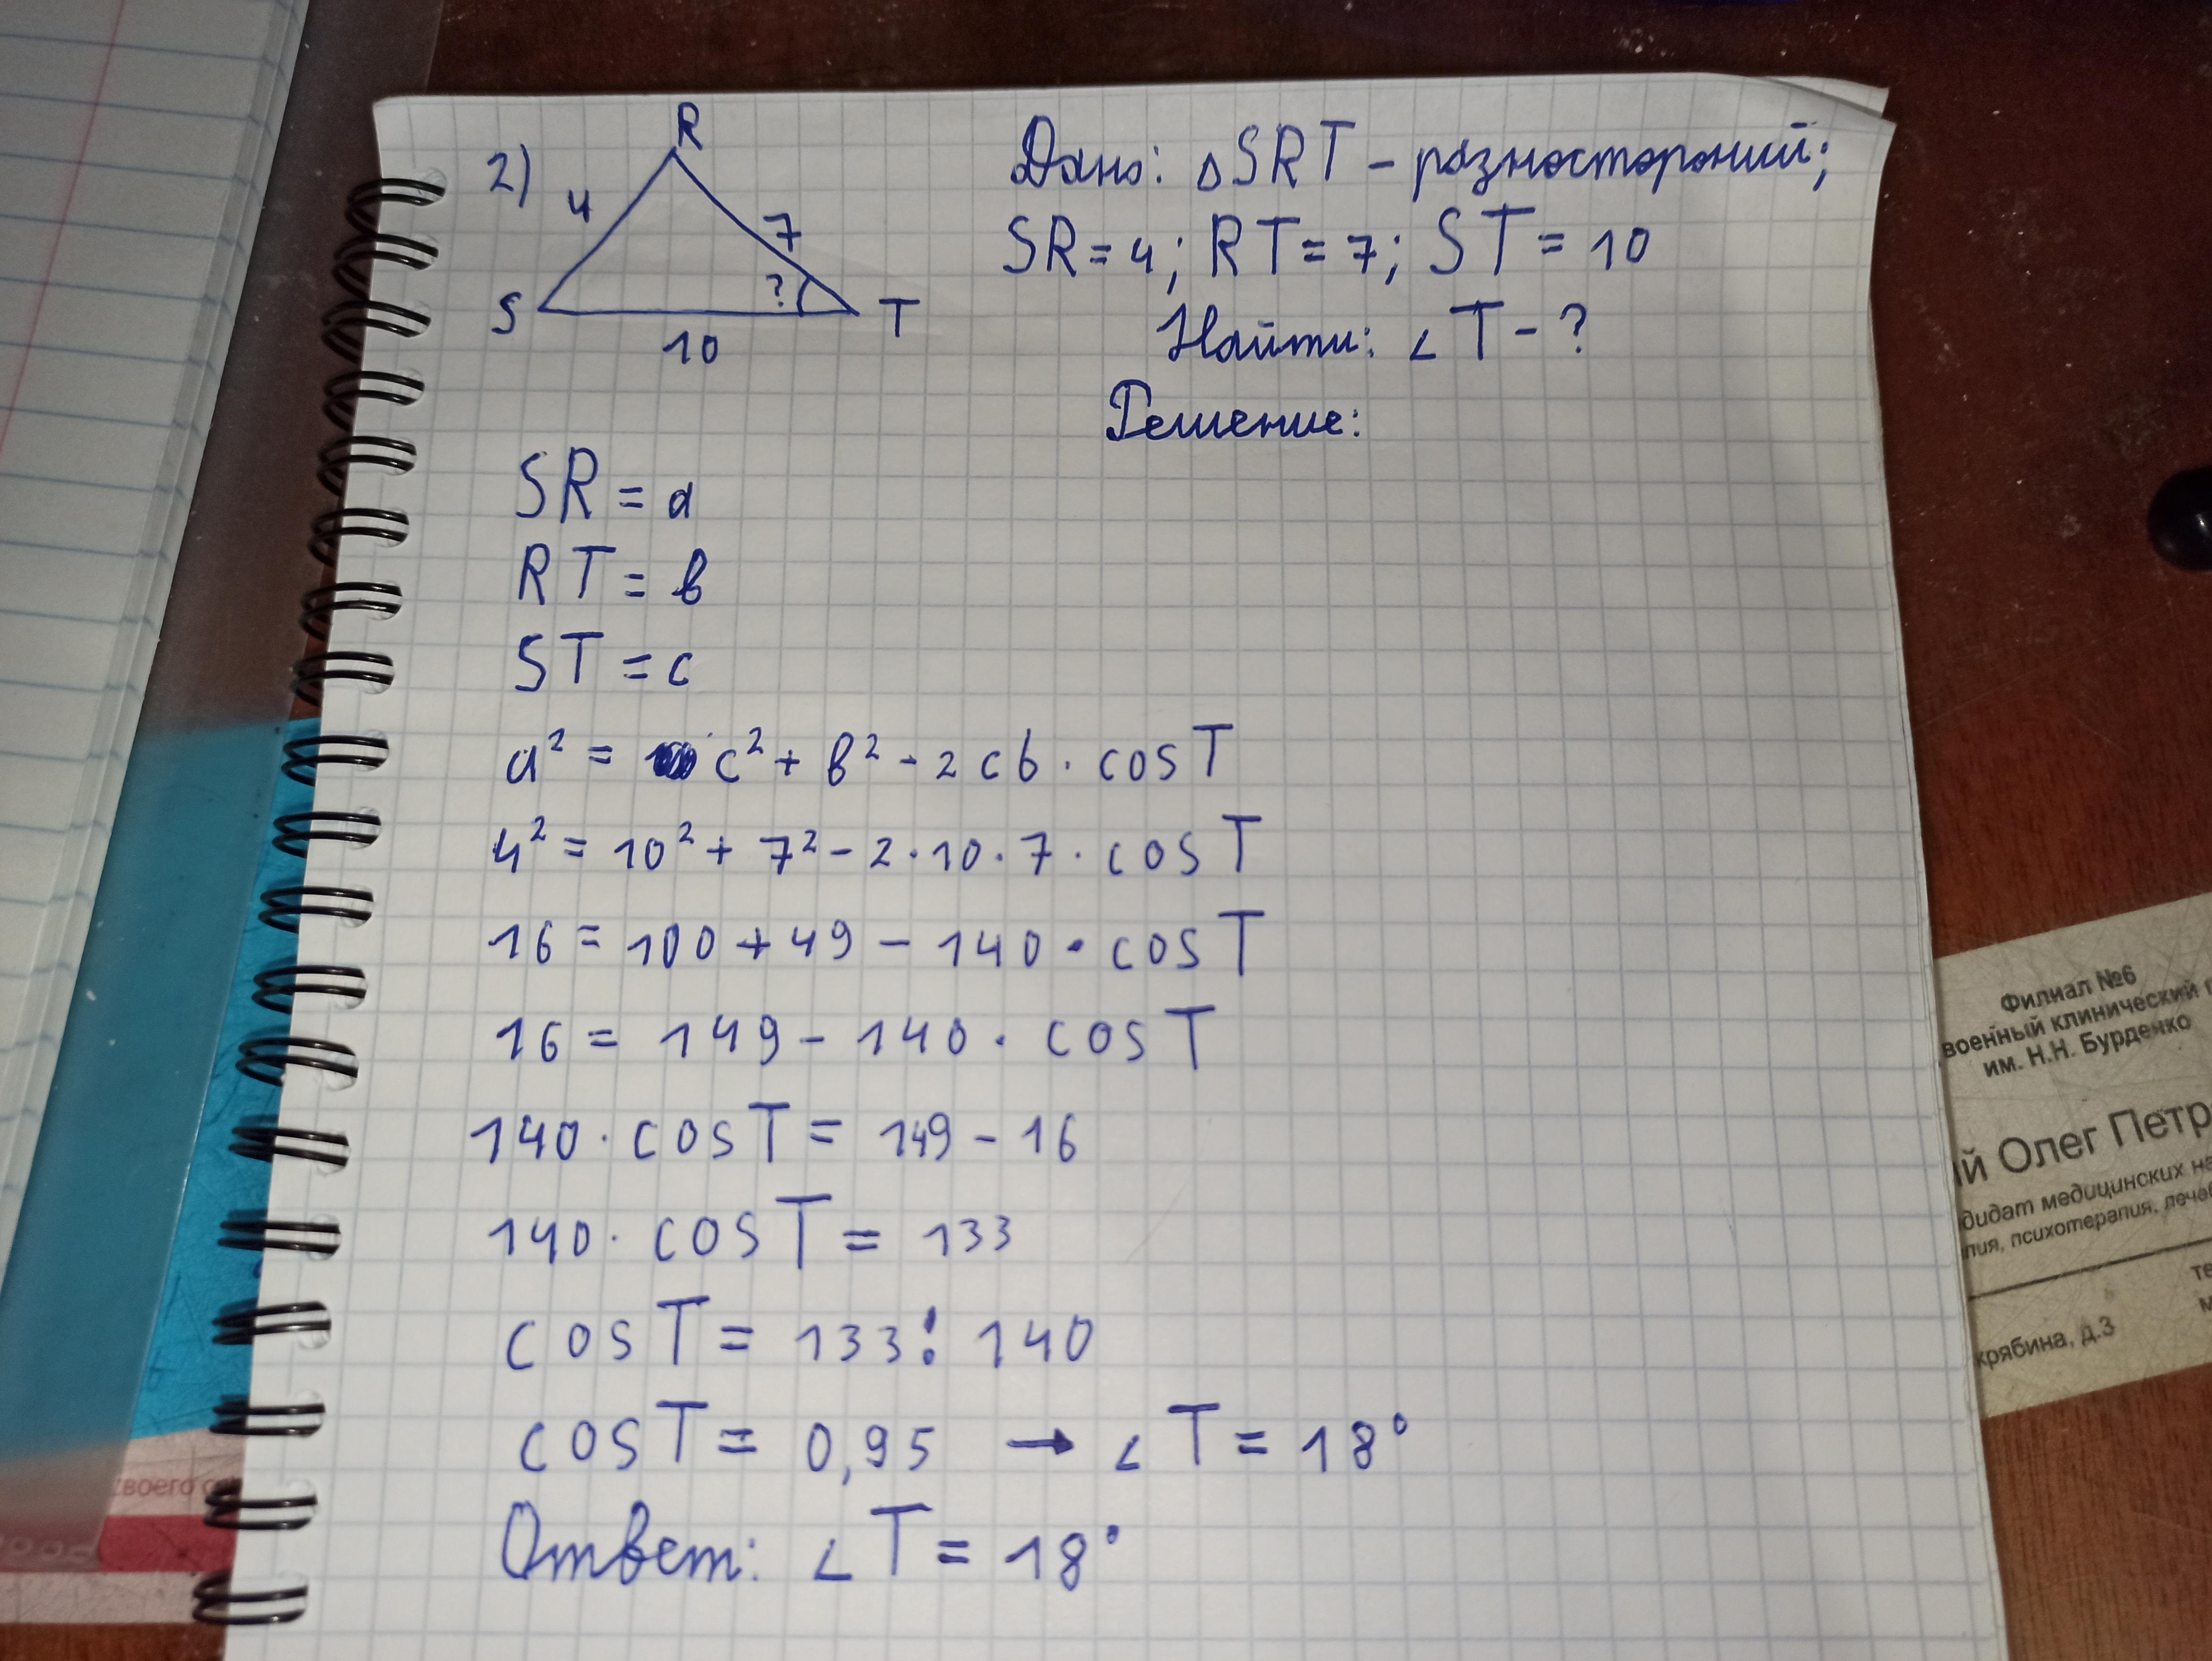 2)
R
4
7
?
S
T
10
Дано: △SRT - разносторонний;
SR = 4; RT = 7; ST = 10
Найти: ∠T - ?
Решение:
SR = a
RT = в
ST = c
a² = c² + в² - 2cb · cosT
4² = 10² + 7² - 2·10·7 · cosT
16 = 100 + 49 - 140 · cosT
16 = 149 - 140 · cosT
140 · cosT = 149 - 16
140 · cosT = 133
cosT = 133 : 140
cosT = 0,95 → ∠T = 18°
Ответ: ∠T = 18°
Филиал №6
военный клинический
им. Н.Н. Бурденко
Олег
медицинских
психотерапия,
д.3
своего